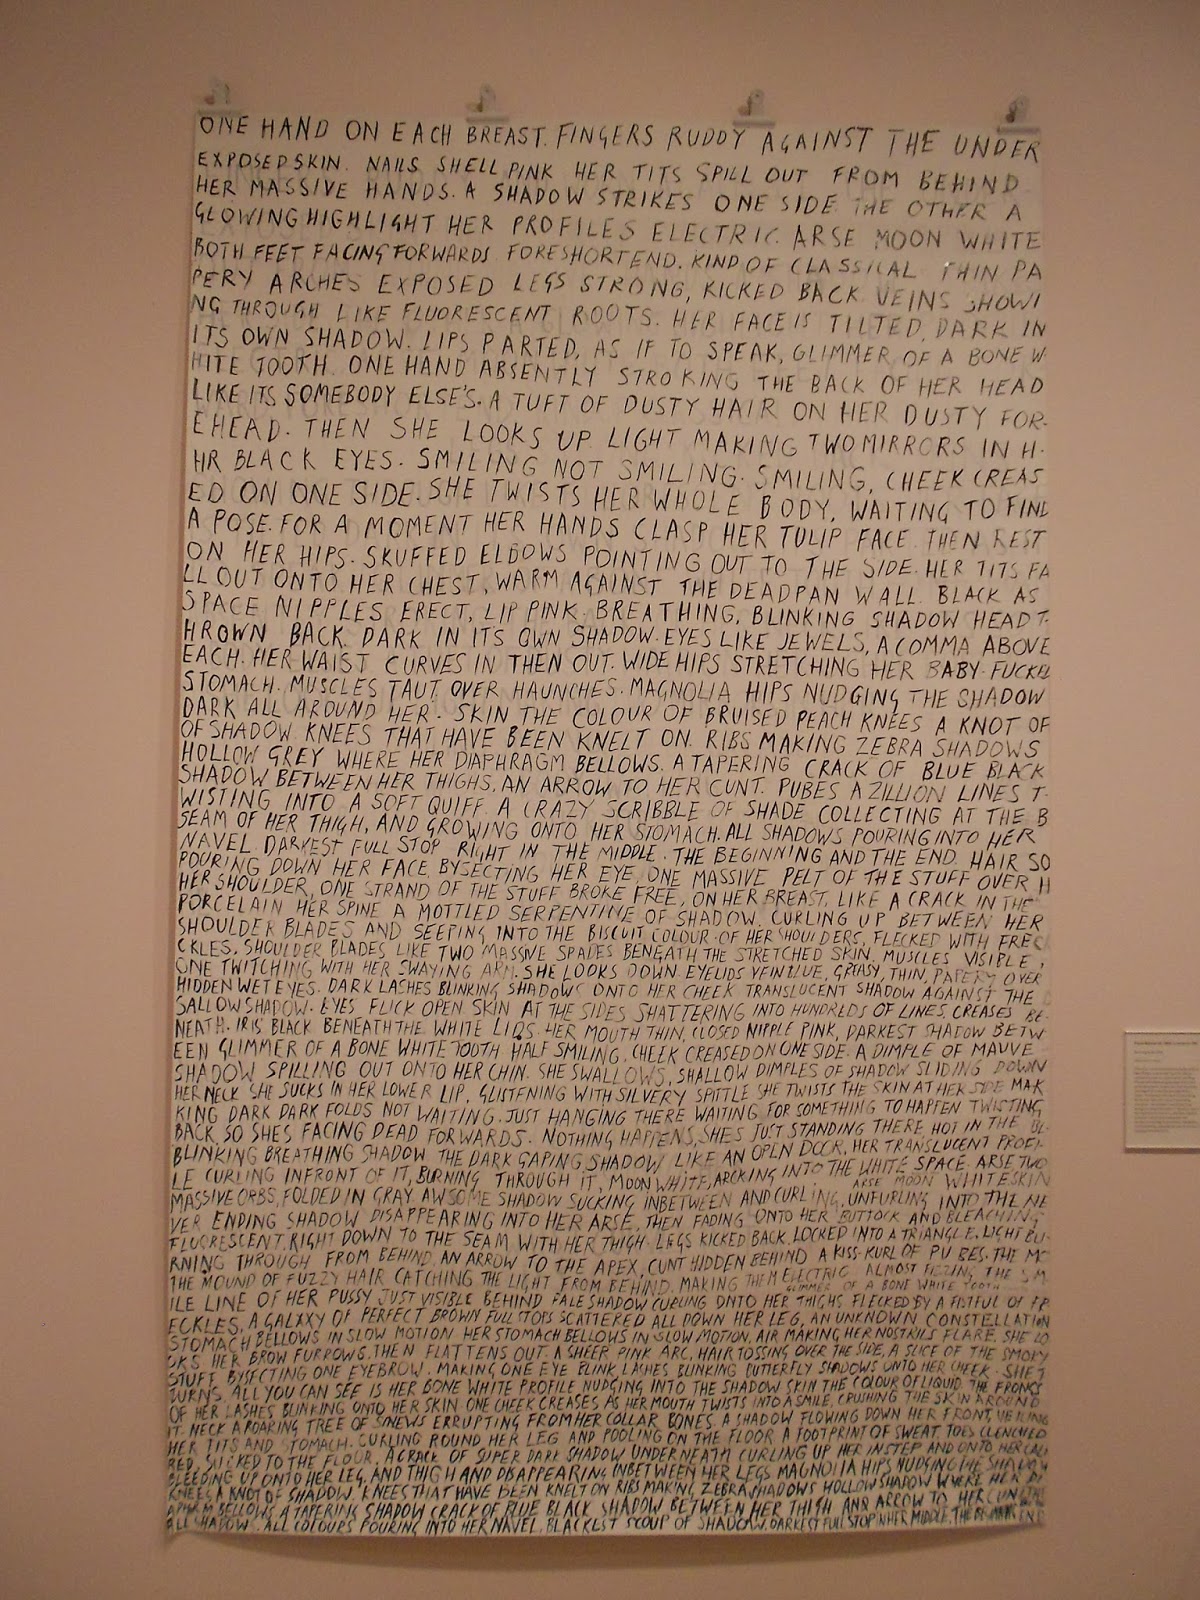 ONE HAND ON EACH BREAST. FINGERS RUDDY AGAINST THE UNDER
EXPOSED SKIN. NAILS SHELL PINK HER TITS SPILL OUT FROM BEHIND
HER MASSIVE HANDS. A SHADOW STRIKES ONE SIDE. THE OTHER A
GLOWING HIGHLIGHT HER PROFILES ELECTRIC. ARSE MOON WHITE
BOTH FEET FACING FORWARDS FORESHORTEND. KIND OF CLASSICAL THIN PA
PERY ARCHES EXPOSED LEGS STRONG, KICKED BACK. VEINS SHOWI
NG THROUGH LIKE FLUORESCENT ROOTS. HER FACE IS TILTED, DARK IN
ITS OWN SHADOW. LIPS PARTED, AS IF TO SPEAK, GLIMMER OF A BONE W
HITE TOOTH. ONE HAND ABSENTLY STROKING THE BACK OF HER HEAD
LIKE ITS SOMEBODY ELSE'S. A TUFT OF DUSTY HAIR ON HER DUSTY FOR-
EHEAD. THEN SHE LOOKS UP. LIGHT MAKING TWO MIRRORS IN H-
HR BLACK EYES. SMILING NOT SMILING. SMILING, CHEEK CREAS
ED ON ONE SIDE. SHE TWISTS HER WHOLE BODY, WAITING TO FIND
A POSE. FOR A MOMENT HER HANDS CLASP HER TULIP FACE. THEN REST
ON HER HIPS. SKUFFED ELBOWS POINTING OUT TO THE SIDE. HER TITS FA
LL OUT ONTO HER CHEST, WARM AGAINST THE DEADPAN WALL. BLACK AS
SPACE NIPPLES ERECT, LIP PINK. BREATHING, BLINKING SHADOW HEAD T-
HROWN BACK. DARK IN ITS OWN SHADOW. EYES LIKE JEWELS, A COMMA ABOVE
EACH. HER WAIST CURVES IN THEN OUT. WIDE HIPS STRETCHING HER BABY-FUCKED
STOMACH. MUSCLES TAUT OVER HAUNCHES. MAGNOLIA HIPS NUDGING THE SHADOW
DARK ALL AROUND HER. SKIN THE COLOUR OF BRUISED PEACH KNEES A KNOT OF
OF SHADOW. KNEES THAT HAVE BEEN KNELT ON. RIBS MAKING ZEBRA SHADOWS
HOLLOW GREY WHERE HER DIAPHRAGM BELLOWS. A TAPERING CRACK OF BLUE BLACK
SHADOW BETWEEN HER THIGHS, AN ARROW TO HER CUNT. PUBES A ZILLION LINES T-
WISTING INTO A SOFT QUIFF. A CRAZY SCRIBBLE OF SHADE COLLECTING AT THE B
SEAM OF HER THIGH, AND GROWING ONTO HER STOMACH. ALL SHADOWS POURING INTO HER
NAVEL. DARKEST FULL STOP RIGHT IN THE MIDDLE. THE BEGINNING AND THE END. HAIR SO
POURING DOWN HER FACE, BYSECTING HER EYE, ONE MASSIVE PELT OF THE STUFF OVER H
HER SHOULDER, ONE STRAND OF THE STUFF BROKE FREE, ON HER BREAST, LIKE A CRACK IN THE
PORCELAIN HER SPINE A MOTTLED SERPENTINE OF SHADOW. CURLING UP BETWEEN HER
SHOULDER BLADES AND SEEPING INTO THE BISCUIT COLOUR OF HER SHOULDERS, FLECKED WITH FREC
CKLES. SHOULDER BLADES LIKE TWO MASSIVE SPADES BENEATH THE STRETCHED SKIN. MUSCLES VISIBLE,
ONE TWITCHING WITH HER SWAYING ARM. SHE LOOKS DOWN. EYELIDS VEIN BLUE, GREASY, THIN, PAPERY OVER
HIDDEN WET EYES. DARK LASHES BLINKING SHADOWS ONTO HER CHEEK TRANSLUCENT SHADOW AGAINST THE
SALLOW SHADOW. EYES FLICK OPEN. SKIN AT THE SIDES SHATTERING INTO HUNDREDS OF LINES, CREASES BE-
NEATH. IRIS BLACK BENEATH THE WHITE LIDS. HER MOUTH THIN, CLOSED NIPPLE PINK, DARKEST SHADOW BETW
EEN GLIMMER OF A BONE WHITE TOOTH HALF SMILING. CHEEK CREASED ON ONE SIDE. A DIMPLE OF MAUVE
SHADOW SPILLING OUT ONTO HER CHIN. SHE SWALLOWS, SHALLOW DIMPLES OF SHADOW SLIDING DOWN
HER NECK SHE SUCKS IN HER LOWER LIP, GLISTENING WITH SILVERY SPITTLE SHE TWISTS THE SKIN AT HER SIDE MAK
KING DARK DARK FOLDS NOT WAITING. JUST HANGING THERE WAITING FOR SOMETHING TO HAPPEN TWISTING
BACK, SO SHES FACING DEAD FORWARDS. NOTHING HAPPENS, SHES JUST STANDING THERE HOT IN THE BL-
BLINKING BREATHING SHADOW THE DARK GAPING SHADOW LIKE AN OPEN DOOR, HER TRANSLUCENT PROFI-
LE CURLING INFRONT OF IT, BURNING THROUGH IT, MOON WHITE, ARCKING INTO THE WHITE SPACE. ARSE TWO
ARSE MOON WHITE SKIN
MASSIVE ORBS, FOLDED IN GRAY. AWSOME SHADOW SUCKING INBETWEEN AND CURLING, UNFURLING INTO THE NE
VER ENDING SHADOW DISAPPEARING INTO HER ARSE, THEN FADING ONTO HER BUTTOCK AND BLEACHING
FLUORESCENT, RIGHT DOWN TO THE SEAM, WITH HER THIGH. LEGS KICKED BACK, LOCKED INTO A TRIANGLE. LIGHT BU-
RNING THROUGH FROM BEHIND. AN ARROW TO THE APEX, CUNT HIDDEN BEHIND A KISS-KURL OF PUBES. THE MO
THE MOUND OF FUZZY HAIR CATCHING THE LIGHT FROM BEHIND. MAKING THEM ELECTRIC ALMOST FIZZING. THE SM
GLIMMER OF A BONE WHITE TOOTH
ILE LINE OF HER PUSSY JUST VISIBLE BEHIND PALE SHADOW CURLING ONTO HER THIGHS FLECKED BY A FISTFUL OF FR
ECKLES, A GALAXY OF PERFECT BROWN FULL STOPS SCATTERED ALL DOWN HER LEG, AN UNKNOWN CONSTELLATION
STOMACH BELLOWS IN SLOW MOTION HER STOMACH BELLOWS IN SLOW MOTION, AIR MAKING HER NOSTRILS FLARE. SHE LO
OKS HER BROW FURROWS. THEN FLATTENS OUT. A SHEER PINK ARC, HAIR TOSSING OVER THE SIDE, A SLICE OF THE SMOKY
STUFF BYSECTING ONE EYEBROW. MAKING ONE EYE BLINK, LASHES BLINKING BUTTERFLY SHADOWS ONTO HER CHEEK. SHE T
TURNS. ALL YOU CAN SEE IS HER BONE WHITE PROFILE NUDGING INTO THE SHADOW SKIN THE COLOUR OF LIQUID. THE FRONDS
OF HER LASHES BLINKING ONTO HER SKIN ONE CHEEK CREASES AS HER MOUTH TWISTS INTO A SMILE, CRUSHING THE SKIN AROUND
IT. NECK A ROARING TREE OF SINEWS ERRUPTING FROM HER COLLAR BONES. A SHADOW FLOWING DOWN HER FRONT, VEILING
HER TITS AND STOMACH. CURLING ROUND HER LEG AND POOLING ON THE FLOOR A FOOTPRINT OF SWEAT. TOES CLENCHED
RED, SUCKED TO THE FLOOR, A CRACK OF SUPER DARK SHADOW UNDERNEATH CURLING UP HER INSTEP AND ONTO HER CALF
BLEEDING UP ONTO HER LEG, AND THIGH AND DISAPPEARING INBETWEEN HER LEGS MAGNOLIA HIPS NUDGING THE SHADOW
KNEES A KNOT OF SHADOW. KNEES THAT HAVE BEEN KNELT ON RIBS MAKING ZEBRA SHADOWS HOLLOW SHADOW WHERE HER DI
APHRAGM BELLOWS A TAPERING SHADOW CRACK OF BLUE BLACK SHADOW BETWEEN HER THIGH AND ARROW TO HER CUNT
ALL SHADOW. ALL COLOURS POURING INTO HER NAVEL, BLACKEST SCOUP OF SHADOW, DARKEST FULL STOP IN HER MIDDLE. THE